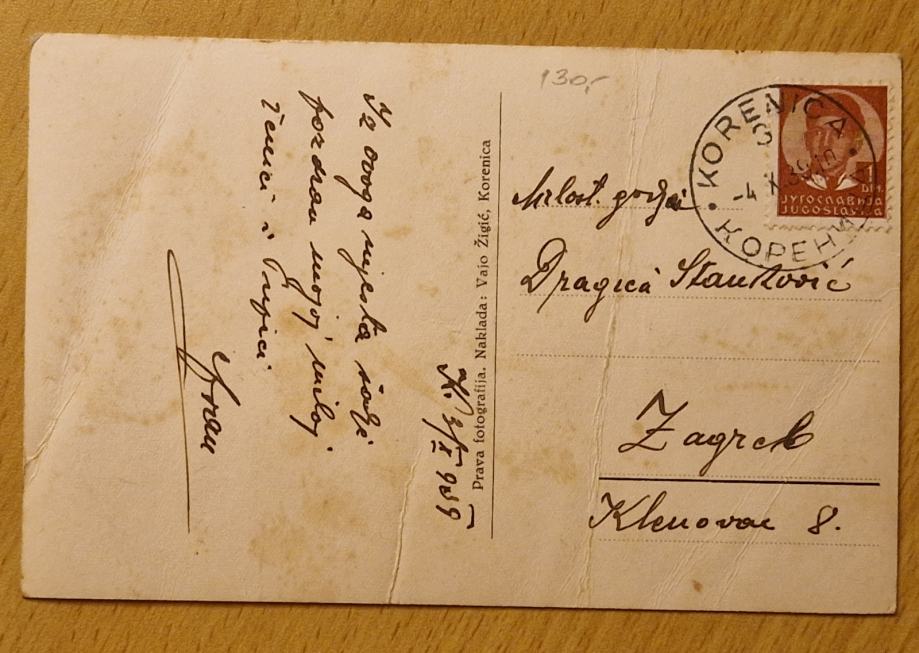 130,-
K. 3/X 939
Iz ovoga mjesta šalje
pozdrav mojoj miloj
ženici i
Prava fotografija. Naklada: Vajo Žigić, Korenica
KORENICA
-4.X.39
КОРЕНИЦА
1
DIN.
ЈУГОСЛАВИЈА
JUGOSLAVIJA
Milost. gođa
Dragica Stanković
Zagreb
Klenovac 8.